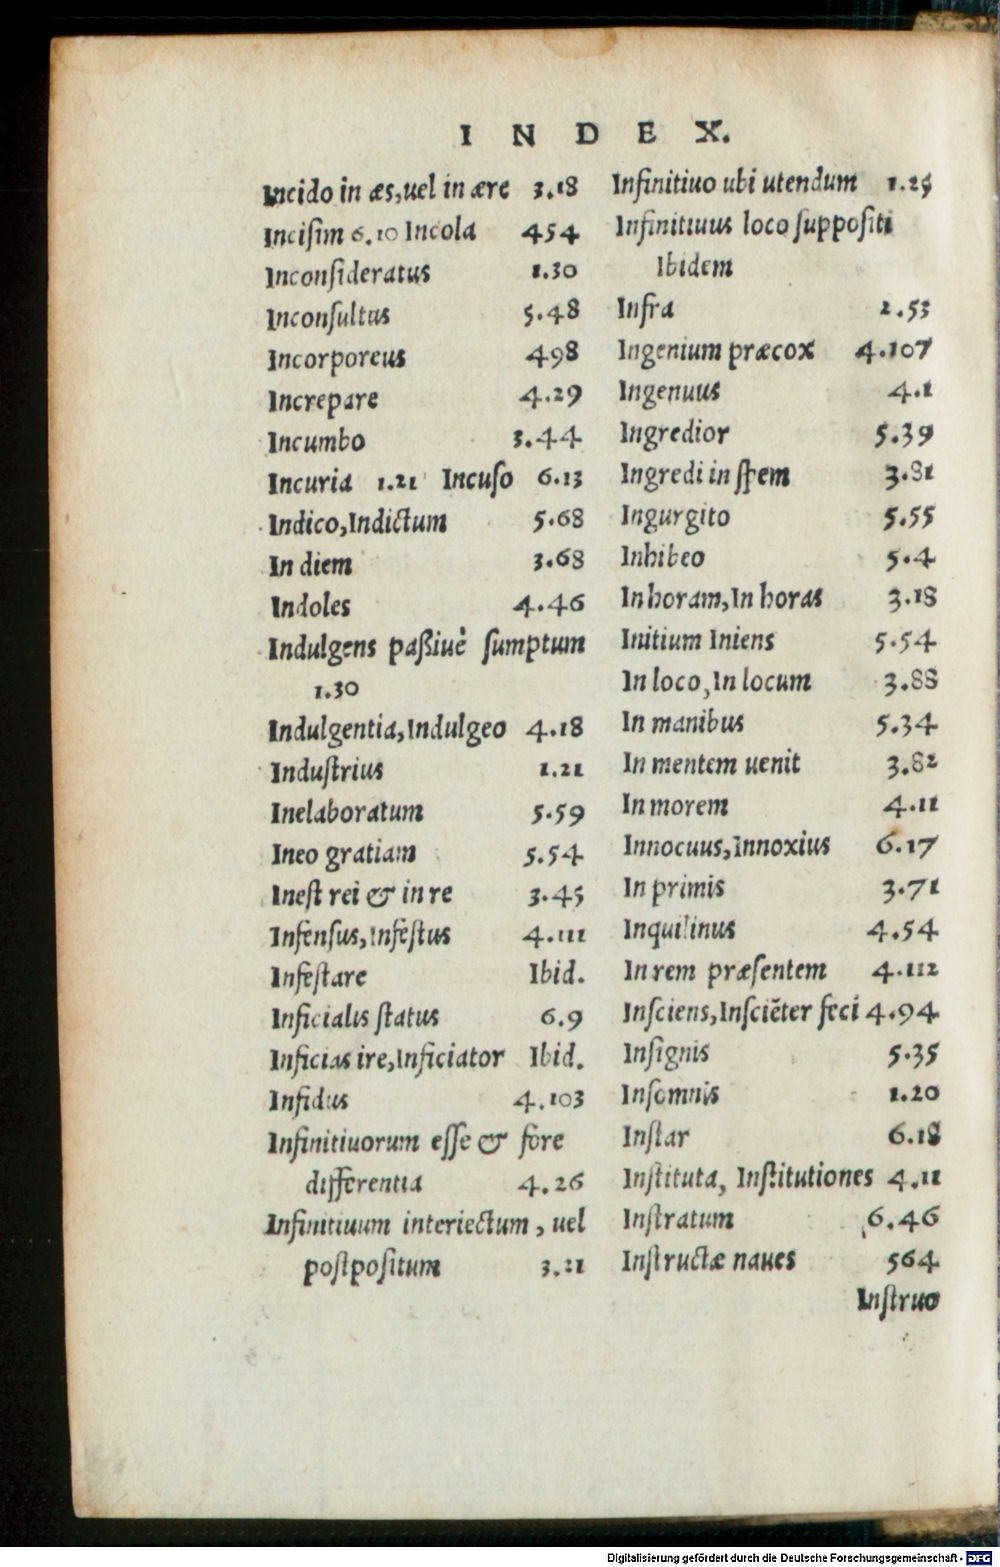 INDEX.
Incido in æs,uel in ære 3.18
Incisim 6.10 Incola 454
Inconsideratus 1.30
Inconsultus 5.48
Incorporeus 498
Increpare 4.29
Incumbo 3.44
Incuria 1.21 Incuso 6.13
Indico,Indictum 5.68
In diem 3.68
Indoles 4.46
Indulgens paßiuè sumptum
1.30
Indulgentia,Indulgeo 4.18
Industrius 1.21
Inelaboratum 5.59
Ineo gratiam 5.54
Inest rei & in re 3.45
Infensus,Infestus 4.111
Infestare Ibid.
Inficialis status 6.9
Inficias ire,Inficiator Ibid.
Infidus 4.103
Infinitiuorum esse & fore
differentia 4.26
Infinitiuum interiectum, uel
postpositum 3.21
Infinitiuo ubi utendum 1.25
Infinitiuus loco suppositi
Ibidem
Infra 2.53
Ingenium præcox 4.107
Ingenuus 4.1
Ingredior 5.39
Ingredi in spem 3.81
Ingurgito 5.55
Inhibeo 5.4
In horam,In horas 3.18
Initium Iniens 5.54
In loco,In locum 3.88
In manibus 5.34
In mentem uenit 3.82
In morem 4.11
Innocuus,Innoxius 6.17
In primis 3.71
Inquilinus 4.54
In rem præsentem 4.112
Insciens,Insciēter feci 4.94
Insignis 5.35
Insomnis 1.20
Instar 6.18
Instituta, Institutiones 4.11
Instratum 6.46
Instructæ naues 564
Instruo
Digitalisierung gefördert durch die Deutsche Forschungsgemeinschaft - DFG